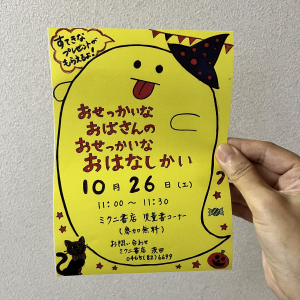 すてきな
プレゼントが
もらえるよ!
おせっかいな
おばさんの
おせっかいな
おはなしかい
10月26日(土)
11:00～11:30
ミクニ書店 児童書コーナー
(参加無料)
お問い合わせ
ミクニ書店